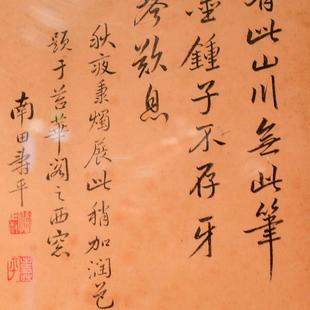 有此山川無此筆
鍾子不存牙
歎息
秋夜秉燭展此稍加潤色
題于苕華閣之西窓
南田壽平